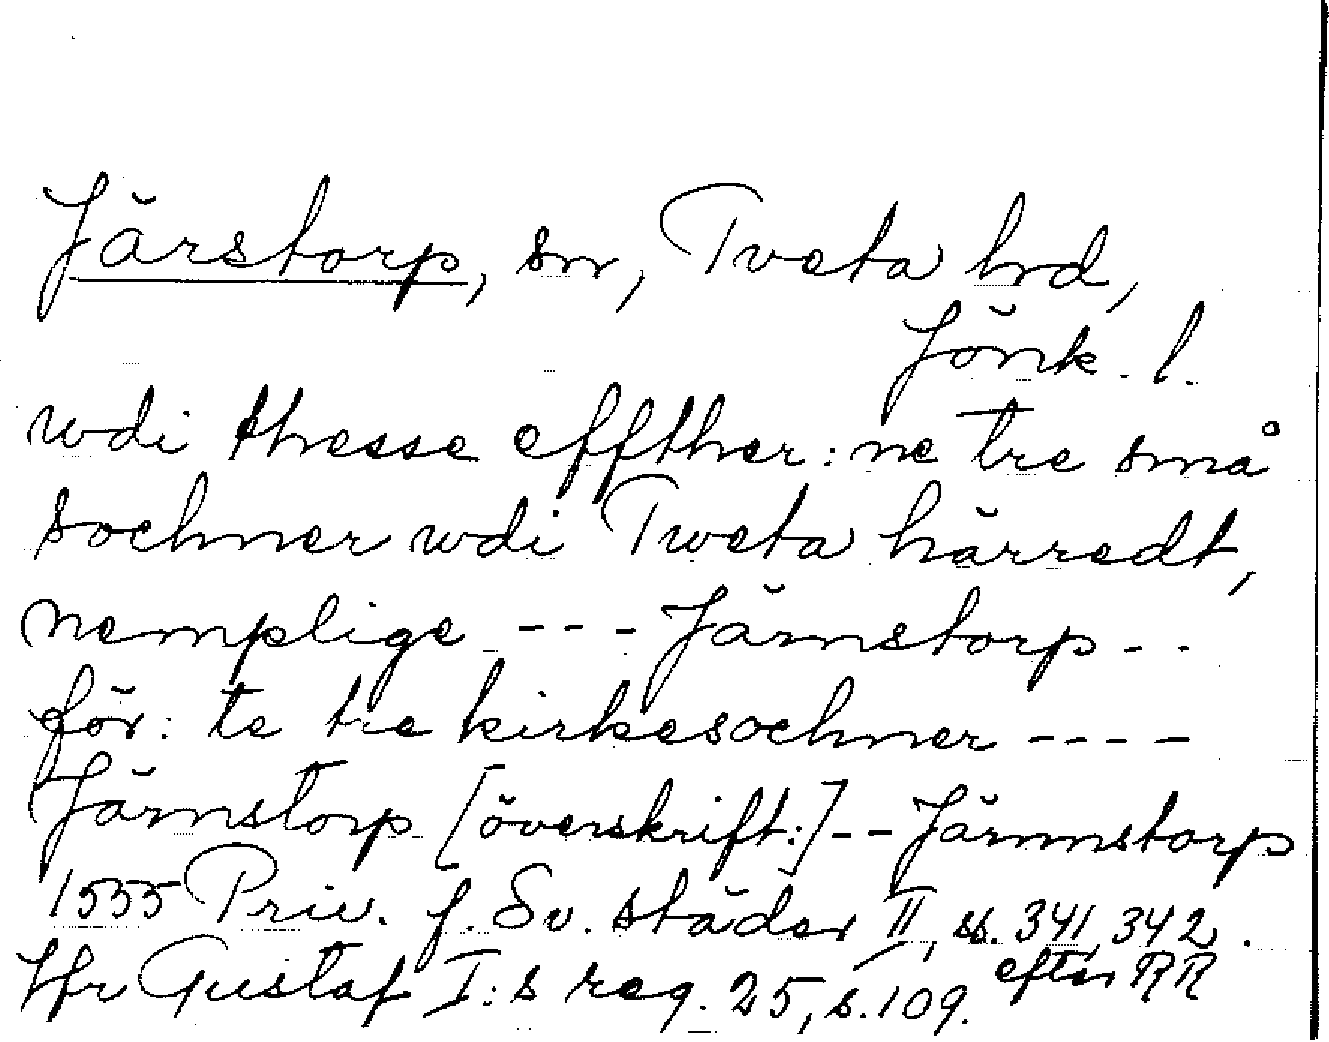 Järstorp, sn, Tveta hrd,
Jönk. l.
wdi thesse effther: ne tre små
sochner wdi Tweta härredt,
nemplige --- Järnstorp --
för: te tre kirkesochner ----
Järnstorp [överskrift:] -- Järnnstorp
1555 Priv. f. Sv. städer II, ss. 341, 342.
Jfr Gustaf I:s reg. 25, s. 109. efter RR